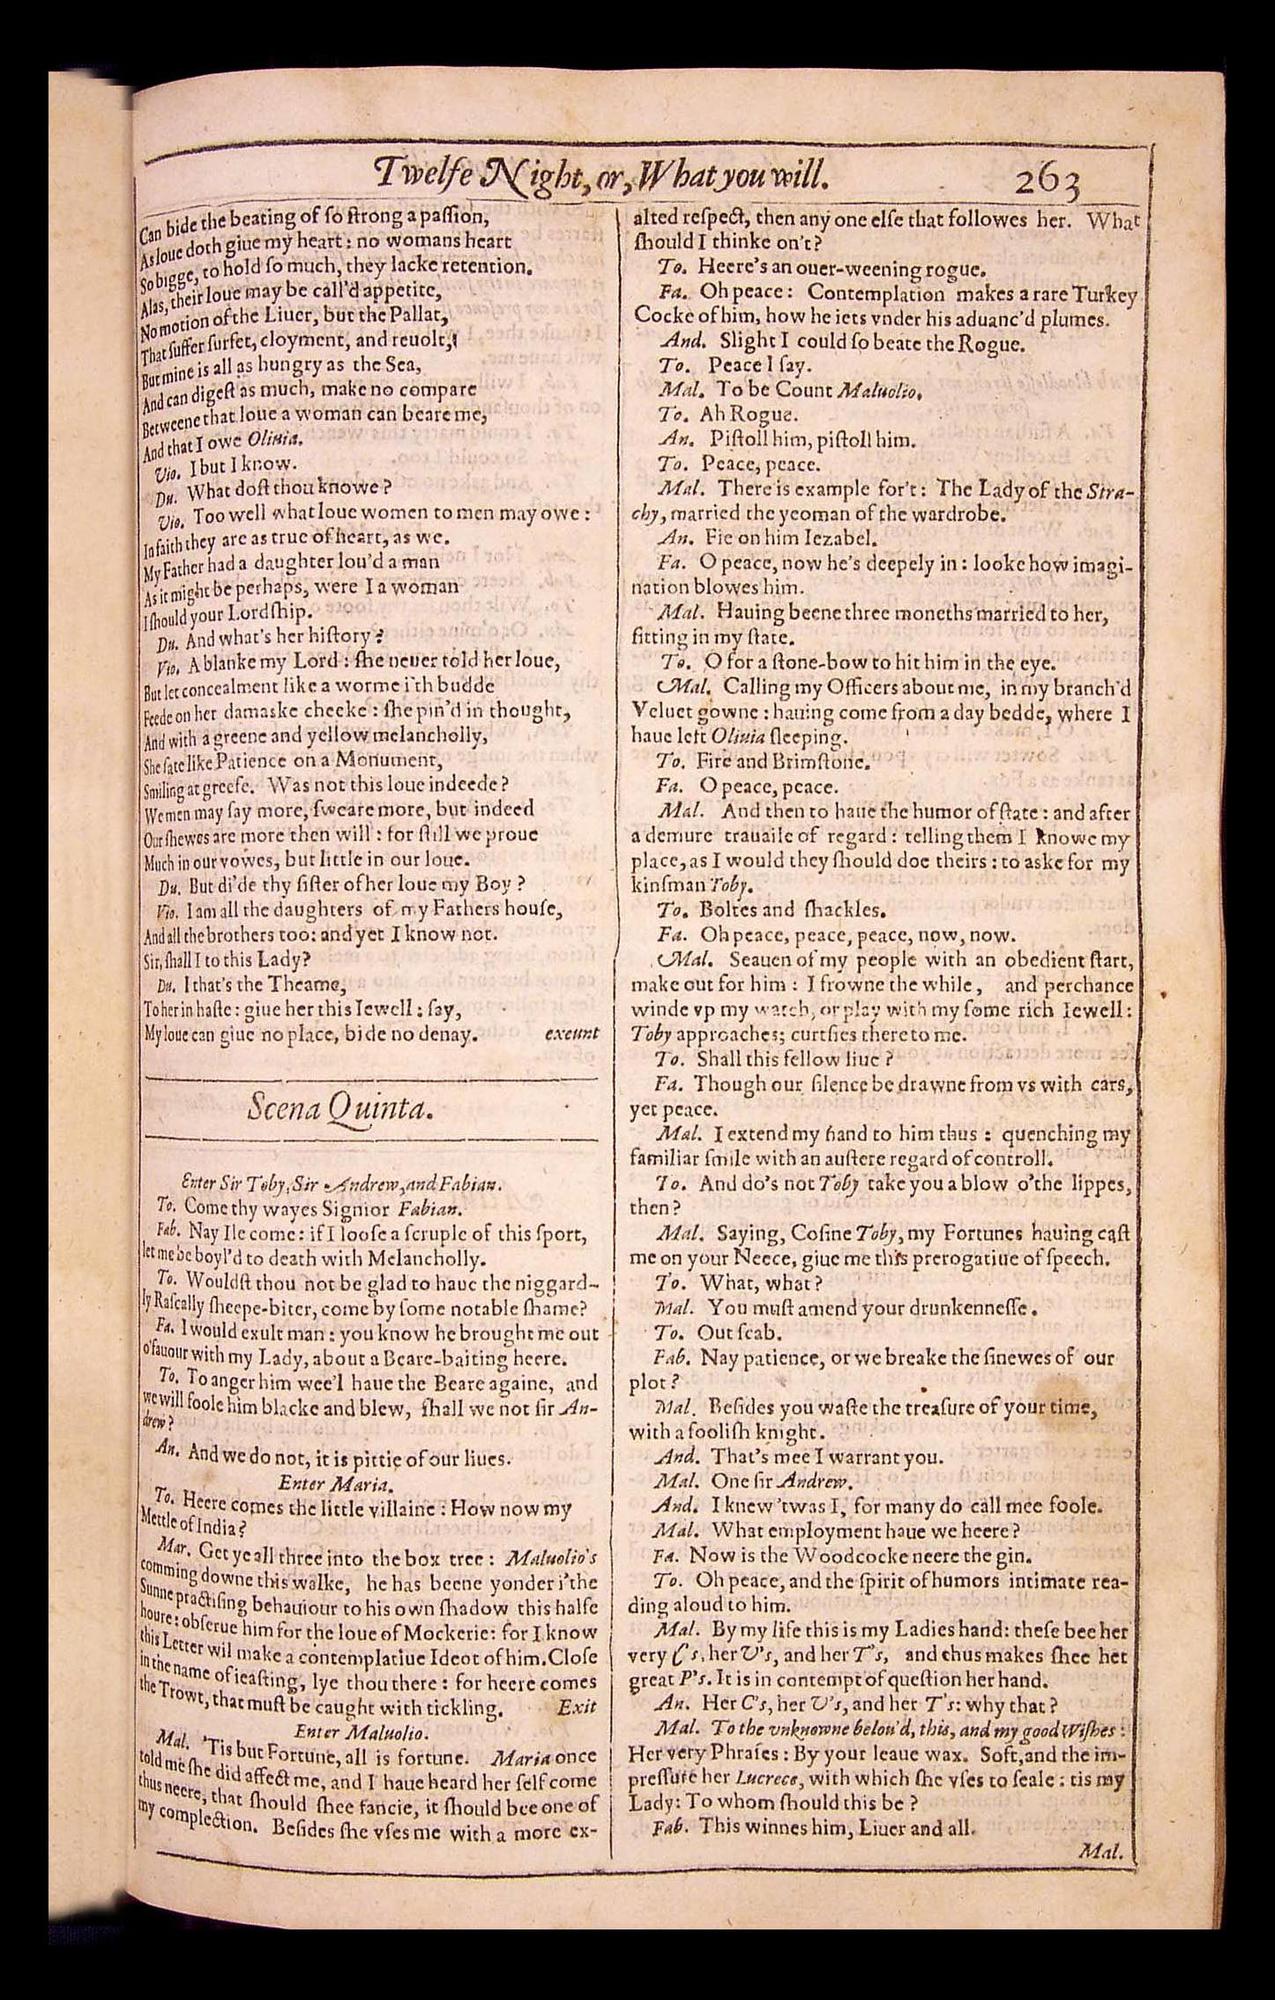 Twelfe Night, or, What you will. 263
Can bide the beating of so strong a passion,
As loue doth giue my heart: no womans heart
So bigge, to hold so much, they lacke retention.
Alas, their loue may be call'd appetite,
No motion of the Liuer, but the Pallat,
That suffer surfet, cloyment, and reuolt,
But mine is all as hungry as the Sea,
And can digest as much, make no compare
Betweene that loue a woman can beare me,
And that I owe Oliuia.
Vio. I but I know.
Du. What dost thou knowe?
Vio. Too well what loue women to men may owe:
In faith they are as true of heart, as we.
My Father had a daughter lou'd a man
As it might be perhaps, were I a woman
I should your Lordship.
Du. And what's her history?
Vio. A blanke my Lord: she neuer told her loue,
But let concealment like a worme i'th budde
Feede on her damaske cheeke: she pin'd in thought,
And with a greene and yellow melancholly,
She sate like Patience on a Monument,
Smiling at greefe. Was not this loue indeede?
We men may say more, sweare more, but indeed
Our shewes are more then will: for still we proue
Much in our vowes, but little in our loue.
Du. But di'de thy sister of her loue my Boy?
Vio. I am all the daughters of my Fathers house,
And all the brothers too: and yet I know not.
Sir, shall I to this Lady?
Du. I that's the Theame,
To her in haste: giue her this Iewell: say,
My loue can giue no place, bide no denay. exeunt
Scena Quinta.
Enter Sir Toby, Sir Andrew, and Fabian.
To. Come thy wayes Signior Fabian.
Fab. Nay Ile come: if I loose a scruple of this sport,
let me be boyl'd to death with Melancholly.
To. Wouldst thou not be glad to haue the niggard-
ly Rascally sheepe-biter, come by some notable shame?
Fa. I would exult man: you know he brought me out
o'fauour with my Lady, about a Beare-baiting heere.
To. To anger him wee'l haue the Beare againe, and
we will foole him blacke and blew, shall we not sir An-
drew?
An. And we do not, it is pittie of our liues.
Enter Maria.
To. Heere comes the little villaine: How now my
Mettle of India?
Mar. Get ye all three into the box tree: Maluolio's
comming downe this walke, he has beene yonder i'the
Sunne practising behauiour to his own shadow this halfe
houre: obserue him for the loue of Mockerie: for I know
this Letter wil make a contemplatiue Ideot of him. Close
in the name of ieasting, lye thou there: for heere comes
the Trowt, that must be caught with tickling. Exit
Enter Maluolio.
Mal. 'Tis but Fortune, all is fortune. Maria once
told me she did affect me, and I haue heard her self come
thus neere, that should shee fancie, it should bee one of
my complection. Besides she vses me with a more ex-
alted respect, then any one else that followes her. What
should I thinke on't?
To. Heere's an ouer-weening rogue.
Fa. Oh peace: Contemplation makes a rare Turkey
Cocke of him, how he iets vnder his aduanc'd plumes.
And. Slight I could so beate the Rogue.
To. Peace I say.
Mal. To be Count Maluolio.
To. Ah Rogue.
An. Pistoll him, pistoll him.
To. Peace, peace.
Mal. There is example for't: The Lady of the Stra-
chy, married the yeoman of the wardrobe.
An. Fie on him Iezabel.
Fa. O peace, now he's deepely in: looke how imagi-
nation blowes him.
Mal. Hauing beene three moneths married to her,
sitting in my state.
To. O for a stone-bow to hit him in the eye.
Mal. Calling my Officers about me, in my branch'd
Veluet gowne: hauing come from a day bedde, where I
haue left Oliuia sleeping.
To. Fire and Brimstone.
Fa. O peace, peace.
Mal. And then to haue the humor of state: and after
a demure trauaile of regard: telling them I knowe my
place, as I would they should doe theirs: to aske for my
kinsman Toby.
To. Boltes and shackles.
Fa. Oh peace, peace, peace, now, now.
Mal. Seauen of my people with an obedient start,
make out for him: I frowne the while, and perchance
winde vp my watch, or play with my some rich Iewell:
Toby approaches; curtsies there to me.
To. Shall this fellow liue?
Fa. Though our silence be drawne from vs with cars,
yet peace.
Mal. I extend my hand to him thus: quenching my
familiar smile with an austere regard of controll.
To. And do's not Toby take you a blow o'the lippes,
then?
Mal. Saying, Cosine Toby, my Fortunes hauing cast
me on your Neece, giue me this prerogatiue of speech.
To. What, what?
Mal. You must amend your drunkennesse.
To. Out scab.
Fab. Nay patience, or we breake the sinewes of our
plot?
Mal. Besides you waste the treasure of your time,
with a foolish knight.
And. That's mee I warrant you.
Mal. One sir Andrew.
And. I knew 'twas I, for many do call mee foole.
Mal. What employment haue we heere?
Fa. Now is the Woodcocke neere the gin.
To. Oh peace, and the spirit of humors intimate rea-
ding aloud to him.
Mal. By my life this is my Ladies hand: these bee her
very C's, her V's, and her T's, and thus makes shee her
great P's. It is in contempt of question her hand.
An. Her C's, her V's, and her T's: why that?
Mal. To the vnknowne belou'd, this, and my good Wishes:
Her very Phrases: By your leaue wax. Soft, and the im-
pressure her Lucrece, with which she vses to seale: tis my
Lady: To whom should this be?
Fab. This winnes him, Liuer and all.
Mal.